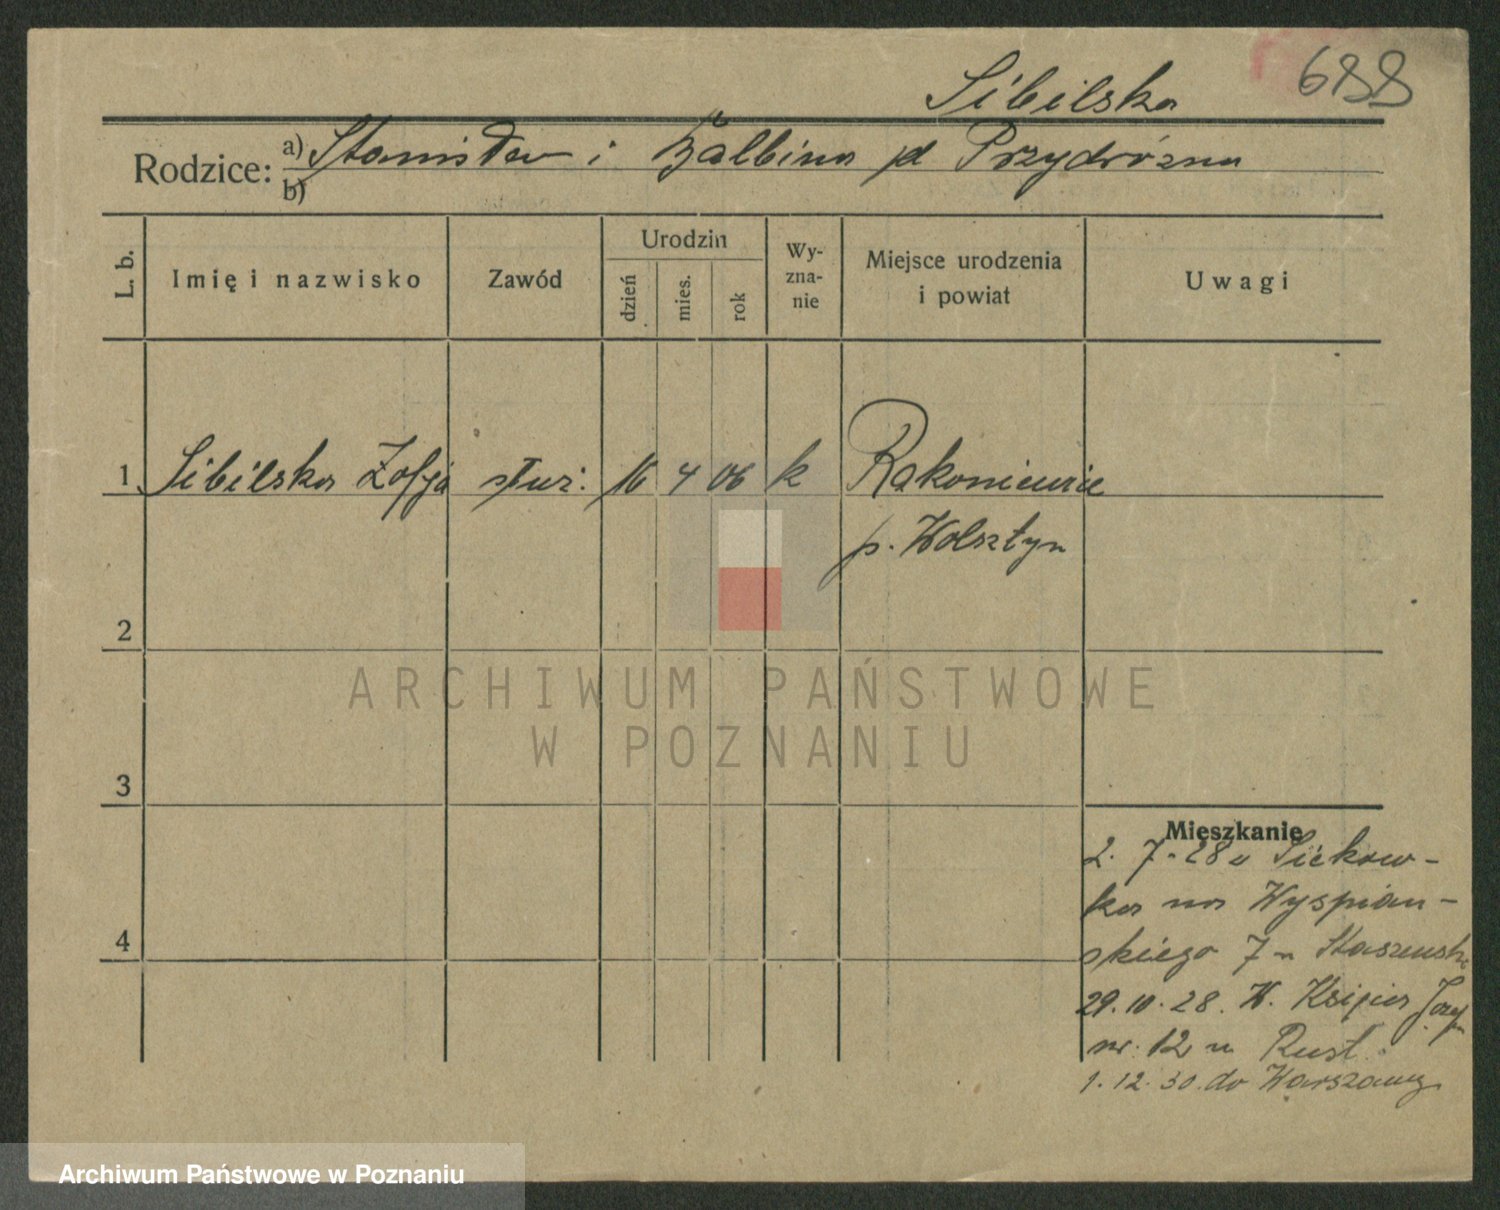 Sibilska 688
Rodzice: a) Stanisław i Balbina pd Przydrózna
b)
L. b. Imię i nazwisko Zawód Urodzin dzień mies. rok Wy-zna-nie Miejsce urodzenia i powiat Uwagi
1 Sibilska Zofja służ. 16 4 06 k Rakoniewice
p. Wolsztyn
2
ARCHIWUM PAŃSTWOWE
W POZNANIU
3
Mieszkanie
2. 7. 28 u Siekow-
ka na Wyspiań-
skiego 7 u
4
29. 10. 28. W.
nr. 12 u Rust.
1. 12. 30. do Warszawy
Archiwum Państwowe w Poznaniu